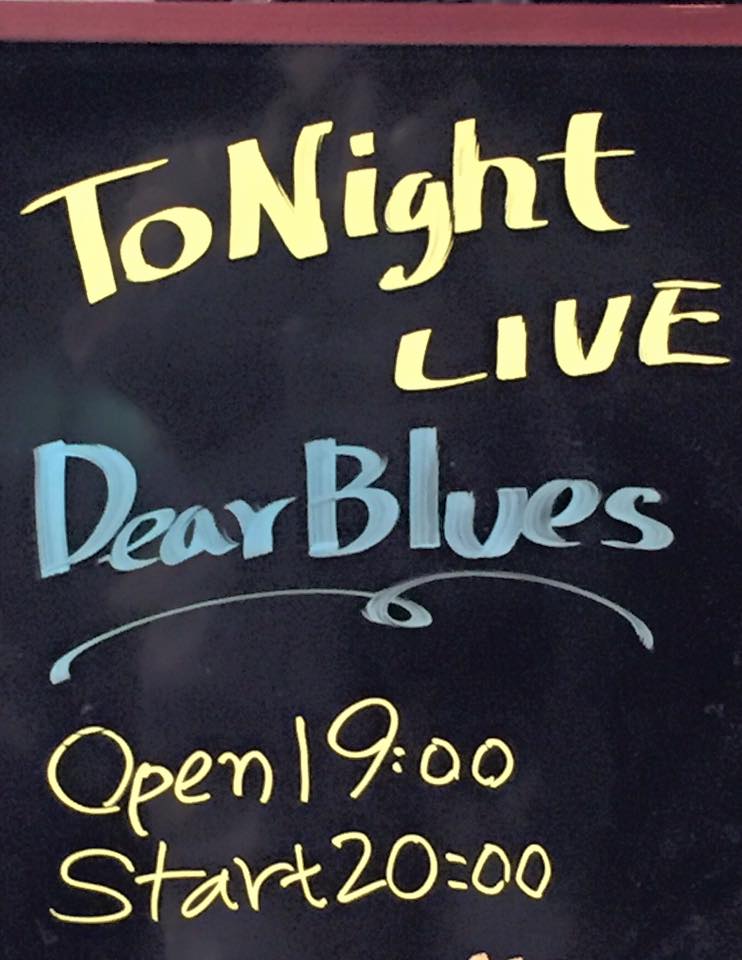 ToNight
LIVE
Dear Blues
Open 19:00
Start 20:00